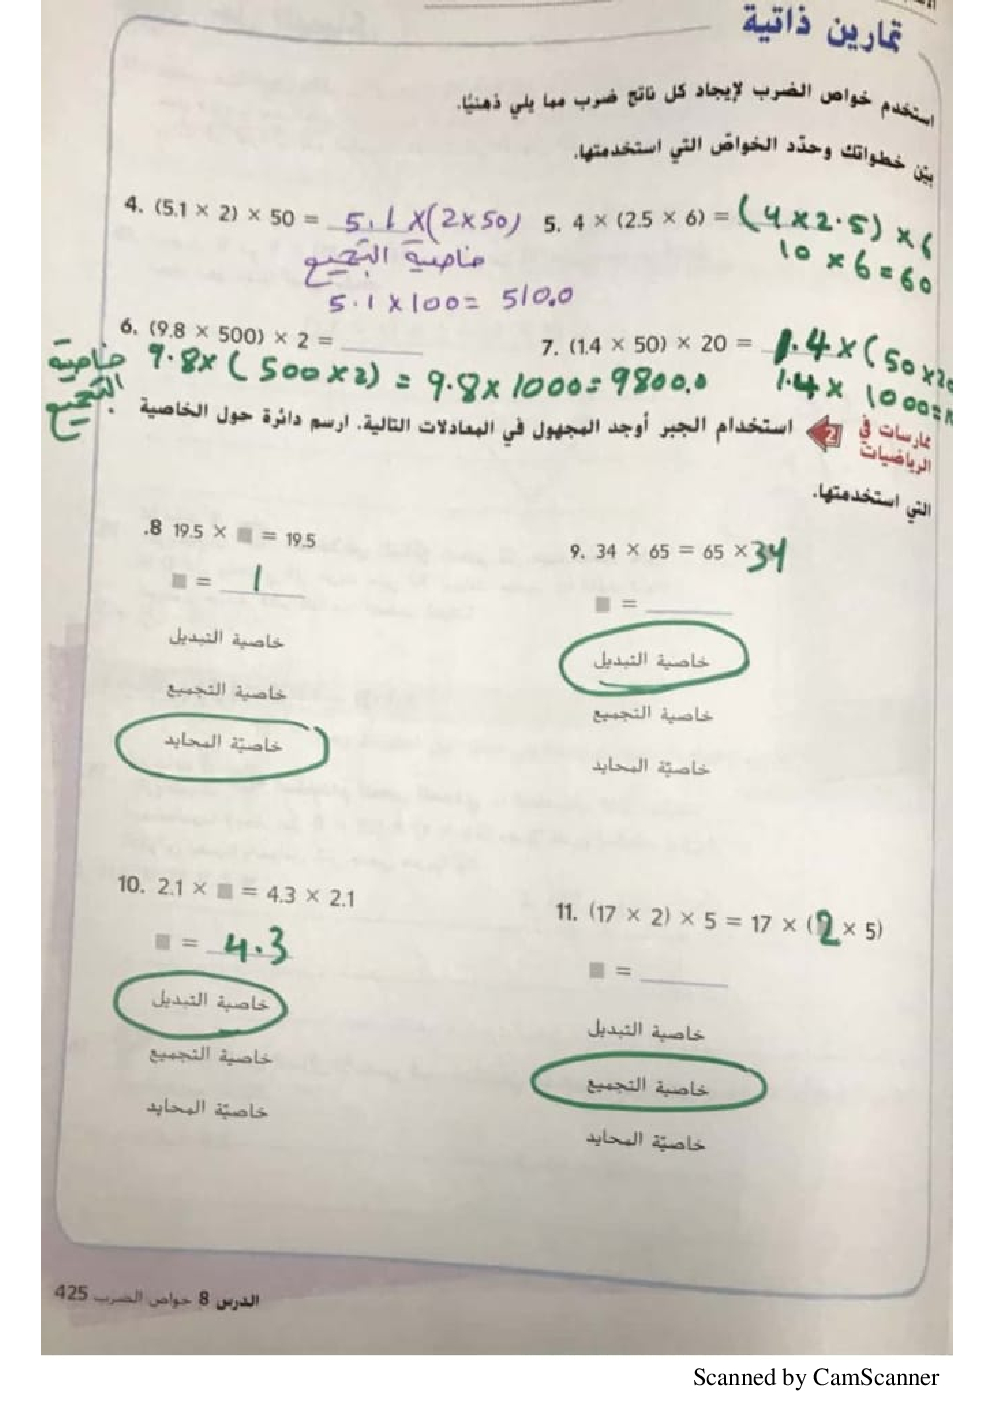 تمارين ذاتية
استخدم خواص الضرب لإيجاد كل ناتج ضرب مما يلي ذهنيًا.
بيّن خطواتك وحدّد الخواصّ التي استخدمتها.
4. (5.1 × 2) × 50 = 5.1 x(2x50)
خاصية التجميع
5.1 x100= 510.0
5. 4 × (2.5 × 6) = (4x2.5) x6
10 x6=60
6. (9.8 × 500) × 2 = ______
خاصية التجميع
9.8x (500x2) = 9.8x1000=9800.0
7. (1.4 × 50) × 20 = 1.4x(50x20
1.4x 1000=
ممارسات في الرياضيات
2 استخدام الجبر أوجد المجهول في المعادلات التالية. ارسم دائرة حول الخاصية
التي استخدمتها.
.8 19.5 × ■ = 19.5
■ = 1
خاصية التبديل
خاصية التجميع
خاصيّة المحايد
9. 34 × 65 = 65 × 34
■ = ______
خاصية التبديل
خاصية التجميع
خاصيّة المحايد
10. 2.1 × ■ = 4.3 × 2.1
■ = 4.3
خاصية التبديل
خاصية التجميع
خاصيّة المحايد
11. (17 × 2) × 5 = 17 × (2 × 5)
■ = ______
خاصية التبديل
خاصية التجميع
خاصيّة المحايد
الدرس 8 خواص الضرب 425
Scanned by CamScanner